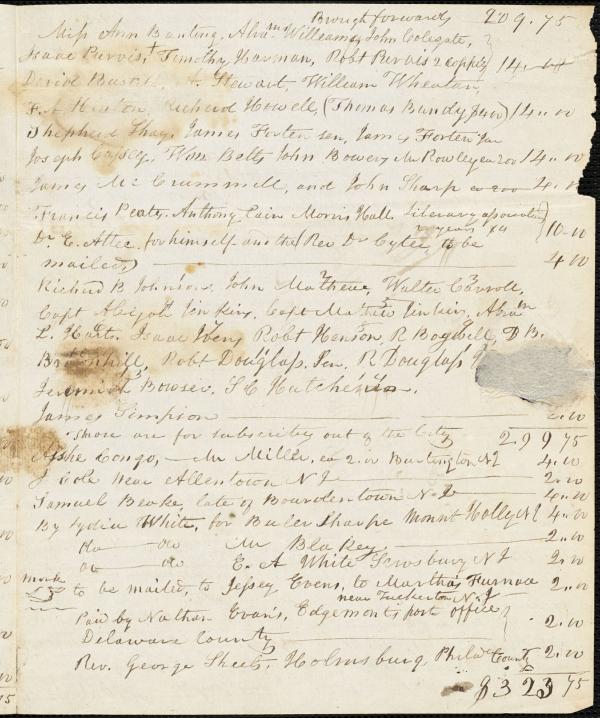 Brought forwards 209.75
Miss Ann Bunting, Abrm Williams, John Colegate,
Isaac Purvis, Timothy Harman, Robt Purvis 2 copies 14.00
David Stewart, William Whealan,
Hinton, Richard Howell, (Thomas Bundy $4.00) 14.00
Shepherd Shay, James Forten sen, James Forten Jun
Joseph Cassey, Wm Betts John Bowers Mr Rowley ea 2.00 14.00
James McCrummell, and John Sharp ea 2.00 4.00
Francis Peaty. Anthony Cain Morris Hall. Literary association
2 years x4 10-00
Dr. E. Atlee, for himself and the (Rev Dr Cyler, to be
mailed) 4.00
Richard B Johnson, John Mathews, Walter Carroll,
Capt Abizah Jenkins, Capt Mathew Jinkins, Abrm
L. Hart. Isaac Robt Henson, R Bogwell, D B.
Brownhill, Robt Douglass, Sen, R Douglass
Jeremiah Bowser. S C Hutchenson.
James Simpson 2.00
Those are for subscribers out of the City 299 75
Congo, Mr Miller, ea 2.00 Burlington NJ 4.00
J Cole near Allentown N J 2.00
Samuel Beake, late of Bourdentown N J 4.00
By Lydia White, for Buler Sharpe Mount Holly NJ 4.00
do do Mr Blakey 2.00
do do E. A White Srewsbury N J 2.00
mark
to be mailed, to Jessey Evens, to Martha Furnace 2.00
near Tuckerton N. J
Paid by Nathan Evans, Edgemonts post office
Delaware County 2.00
Rev. George Sheets, Holmsburg Phila County 2.00
$323 75